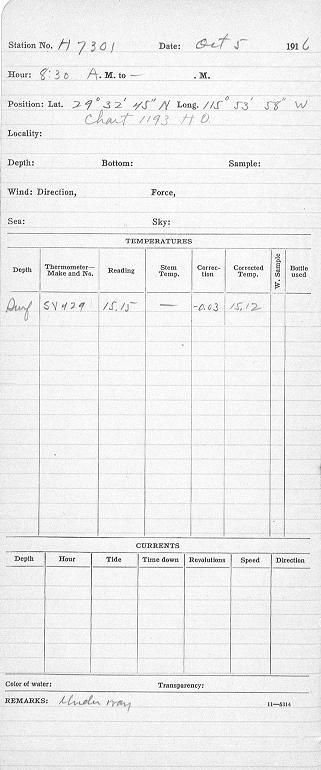 Station No. H 7301 Date: Oct 5 1916
Hour: 8:30 A. M. to — . M.
Position: Lat. 29° 32' 45" N Long. 115° 53' 58" W
Chart 1193 H.O.
Locality:
Depth: Bottom: Sample:
Wind: Direction, Force,
Sea: Sky:
TEMPERATURES
Depth Thermometer— Make and No. Reading Stem Temp. Correction Corrected Temp. W. Sample Bottle used
Surf SV 429 15.15 — -0.03 15.12
CURRENTS
Depth Hour Tide Time down Revolutions Speed Direction
Color of water: Transparency:
REMARKS: Under way 11—5314